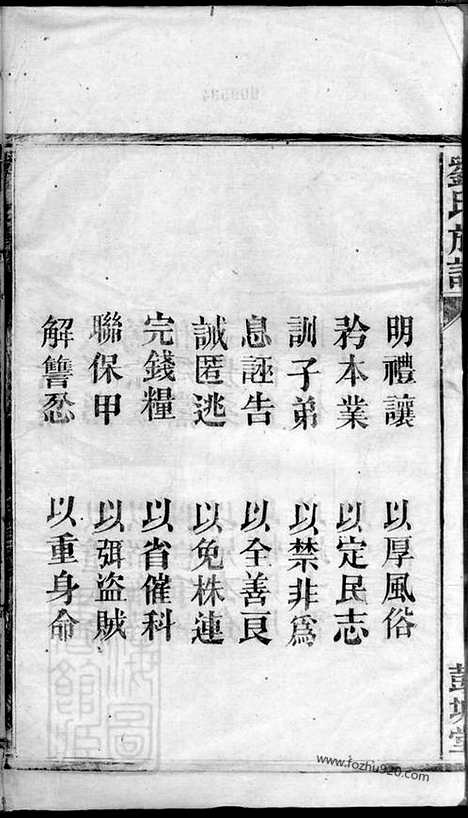 劉氏族譜
彭城堂
明禮讓 以厚風俗
矜本業 以定民志
訓子弟 以禁非爲
息誣告 以全善良
誡匿逃 以免株連
完錢糧 以省催科
聯保甲 以弭盜賊
解讐忿 以重身命
www.fozhu920.com